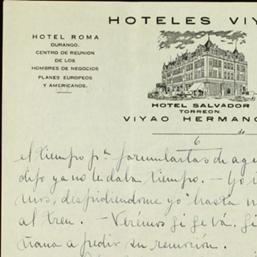 HOTELES VIY
HOTEL ROMA
DURANGO.
CENTRO DE REUNION
DE LOS
HOMBRES DE NEGOCIOS
PLANES EUROPEOS
Y AMERICANOS.
HOTEL SALVADOR
TORREON
VIYAO HERMANO
6
el tiempo pª formularlas de
dijo ya no le daba tiempo. — Yo
despidiendome yo hasta
al tren. — Veremos si se vá. Si
a pedir su remocion.